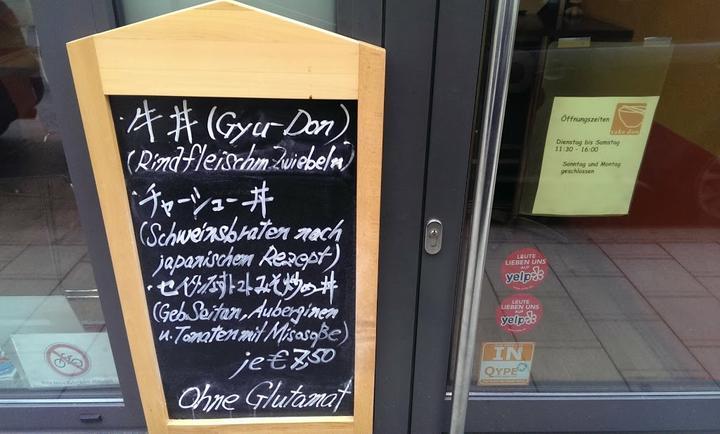 ・牛丼 (Gyu-Don)
(Rindfleisch m. Zwiebeln)
・チャーシュー丼
(Schweinsbraten nach
japanischem Rezept)
(Geb. Seitan, Auberginen
u. Tomaten mit Misosoße)
je € 7,50
Ohne Glutamat
Öffnungszeiten
Dienstag bis Samstag
11:30 - 16:00
Sonntag und Montag
geschlossen
LEUTE
LIEBEN UNS
AUF
yelp
LEUTE
LIEBEN UNS
AUF
yelp
IN
QYPE